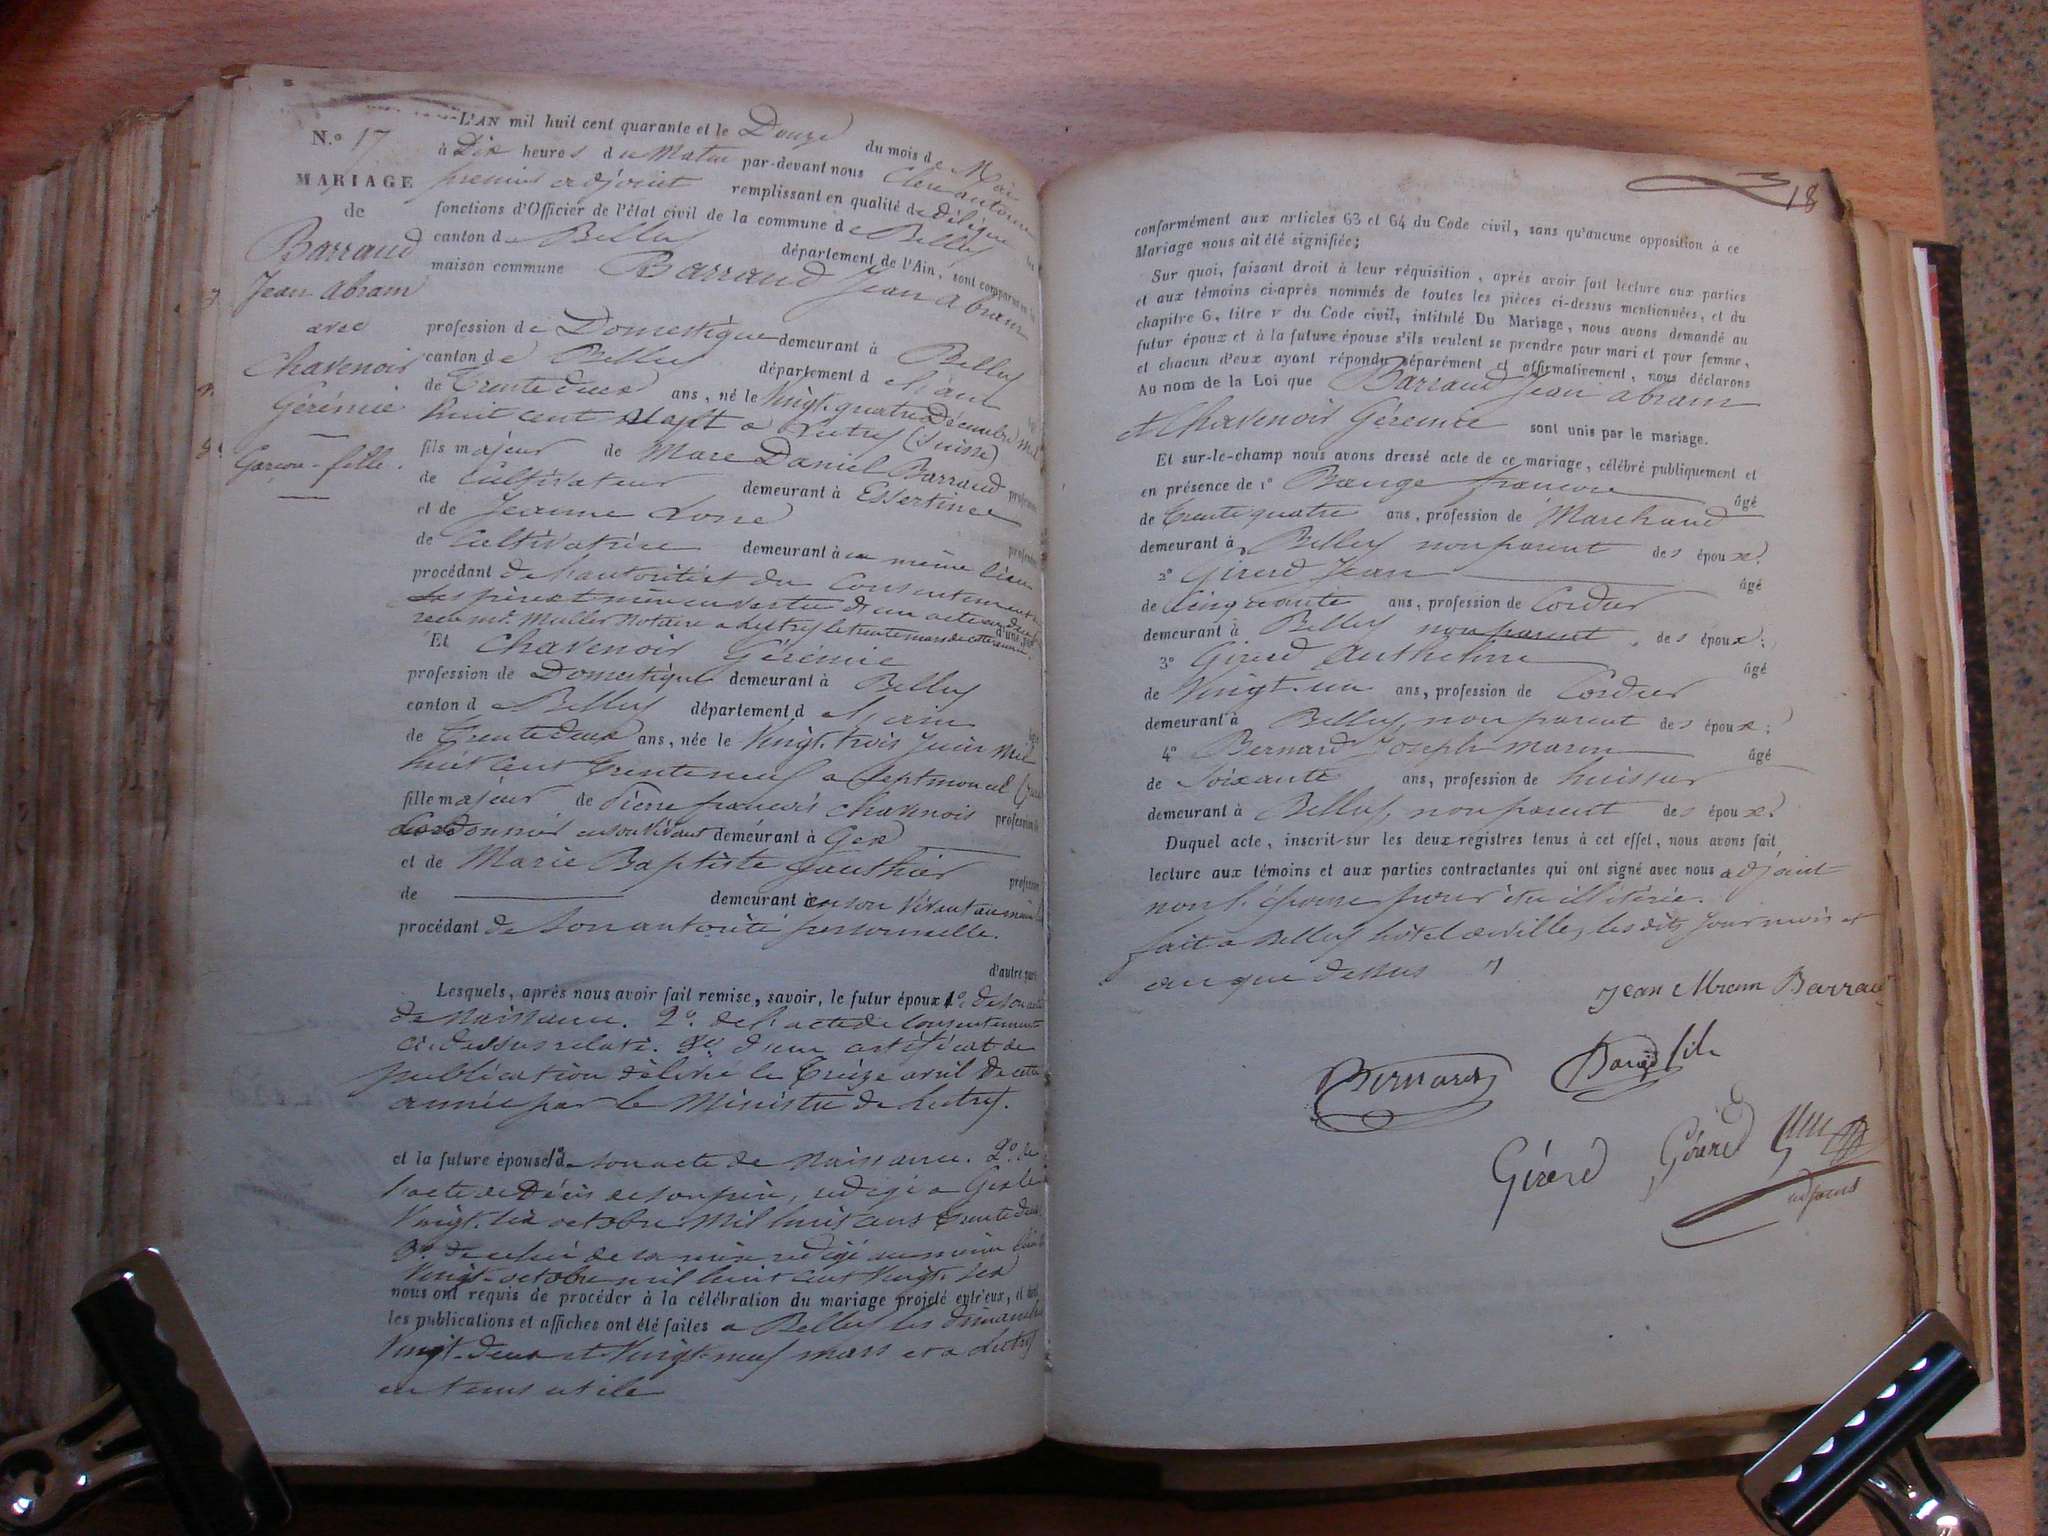 N.° 17
MARIAGE
de
Barraud
Jean abram
avec
Chavenoir
Gérémie
Garçon - fille.
L'AN mil huit cent quarante et le Douze du mois de Mai
à Dix heures du Matin par-devant nous
premier adjoint remplissant en qualité de délégué les
fonctions d'Officier de l'état civil de la commune de Belley
canton de Belley département de l'Ain, sont comparus en la
maison commune Barraud Jean abram
profession de Domestique demeurant à Belley
canton de Belley département de l'ain
de Trente deux ans, né le Vingt quatre Décembre mil
huit cent sept a Lutry (Suisse)
fils majeur de Marc Daniel Barraud profession
de Cultivateur demeurant à Essertines
et de Jeanne profession
de Cultivatrice demeurant à au même lieu
procédant de l'autorité et du Consentement
Ses père et mère en vertu d'un acte
recu mr. Muller Notaire a Lutry le trente mars de cette année d'une part
Et Chavenoir Gérémie
profession de Domestique demeurant à Belley
canton de Belley département de l'ain
de Trente deux ans, née le Vingt trois Juin Mil
huit cent trente neuf a Septmoncel (Jura
fille majeur de Pierre françois Chavenois profession de
Cordonnier en son vivant demeurant à Gex
et de Marie Baptiste Gauthier profession
de demeurant à en son vivant au même
procédant de Son autorité personnelle.
d'autre part
Lesquels, après nous avoir fait remise, savoir, le futur époux 1°. de son acte
de Naissance. 2°. de l'acte de Consentement
ci-dessus relaté. 3° d'un certificat de
publication délivré le treize avril de cette
année par le Ministre de Lutry.
et la future épouse 1° de son acte de Naissance. 2°. de
l'acte de Décès de son père, rédigé a Gex le
Vingt six octobre Mil huit cent trente deux
3°. de celui de sa mère rédigé au même lieu le
Vingt octobre mil huit cent Vingt six
nous ont requis de procéder à la célébration du mariage projeté entr'eux, et dont
les publications et affiches ont été faites a Belley les dimanches
Vingt deux et Vingt neuf mars et a Lutry
en tems utile
18
conformément aux articles 63 et 64 du Code civil, sans qu'aucune opposition à ce
Mariage nous ait été signifiée;
Sur quoi, faisant droit à leur réquisition, après avoir fait lecture aux parties
et aux témoins ci-après nommés de toutes les pièces ci-dessus mentionnées, et du
chapitre 6, titre v du Code civil, intitulé Du Mariage, nous avons demandé au
futur époux et à la future épouse s'ils veulent se prendre pour mari et pour femme,
et chacun d'eux ayant répondu séparément et affirmativement, nous déclarons
Au nom de la Loi que Barraud Jean abram
et Chavenoir Gérémie sont unis par le mariage.
Et sur-le-champ nous avons dressé acte de ce mariage, célébré publiquement et
en présence de 1° françois âgé
de trente quatre ans, profession de Marchand
demeurant à Belley non parent des époux;
2° Girerd Jean âgé
de Cinquante ans, profession de Cordier
demeurant à Belley non parent, des époux;
3° Girerd Anthelme âgé
de Vingt-un ans, profession de Cordier
demeurant à Belley, non parent des époux;
4° Bernard Joseph Marin âgé
de Soixante ans, profession de huissier
demeurant à Belley, non parent des époux;
Duquel acte, inscrit sur les deux registres tenus à cet effet, nous avons fait
lecture aux témoins et aux parties contractantes qui ont signé avec nous adjoint
non l'épouse pour être illitérée.
fait a Belley hôtel de ville, les dits jour mois et
an que dessus
Jean Abram Barraud
Bernard
fils
Girerd Girerd
adjoint